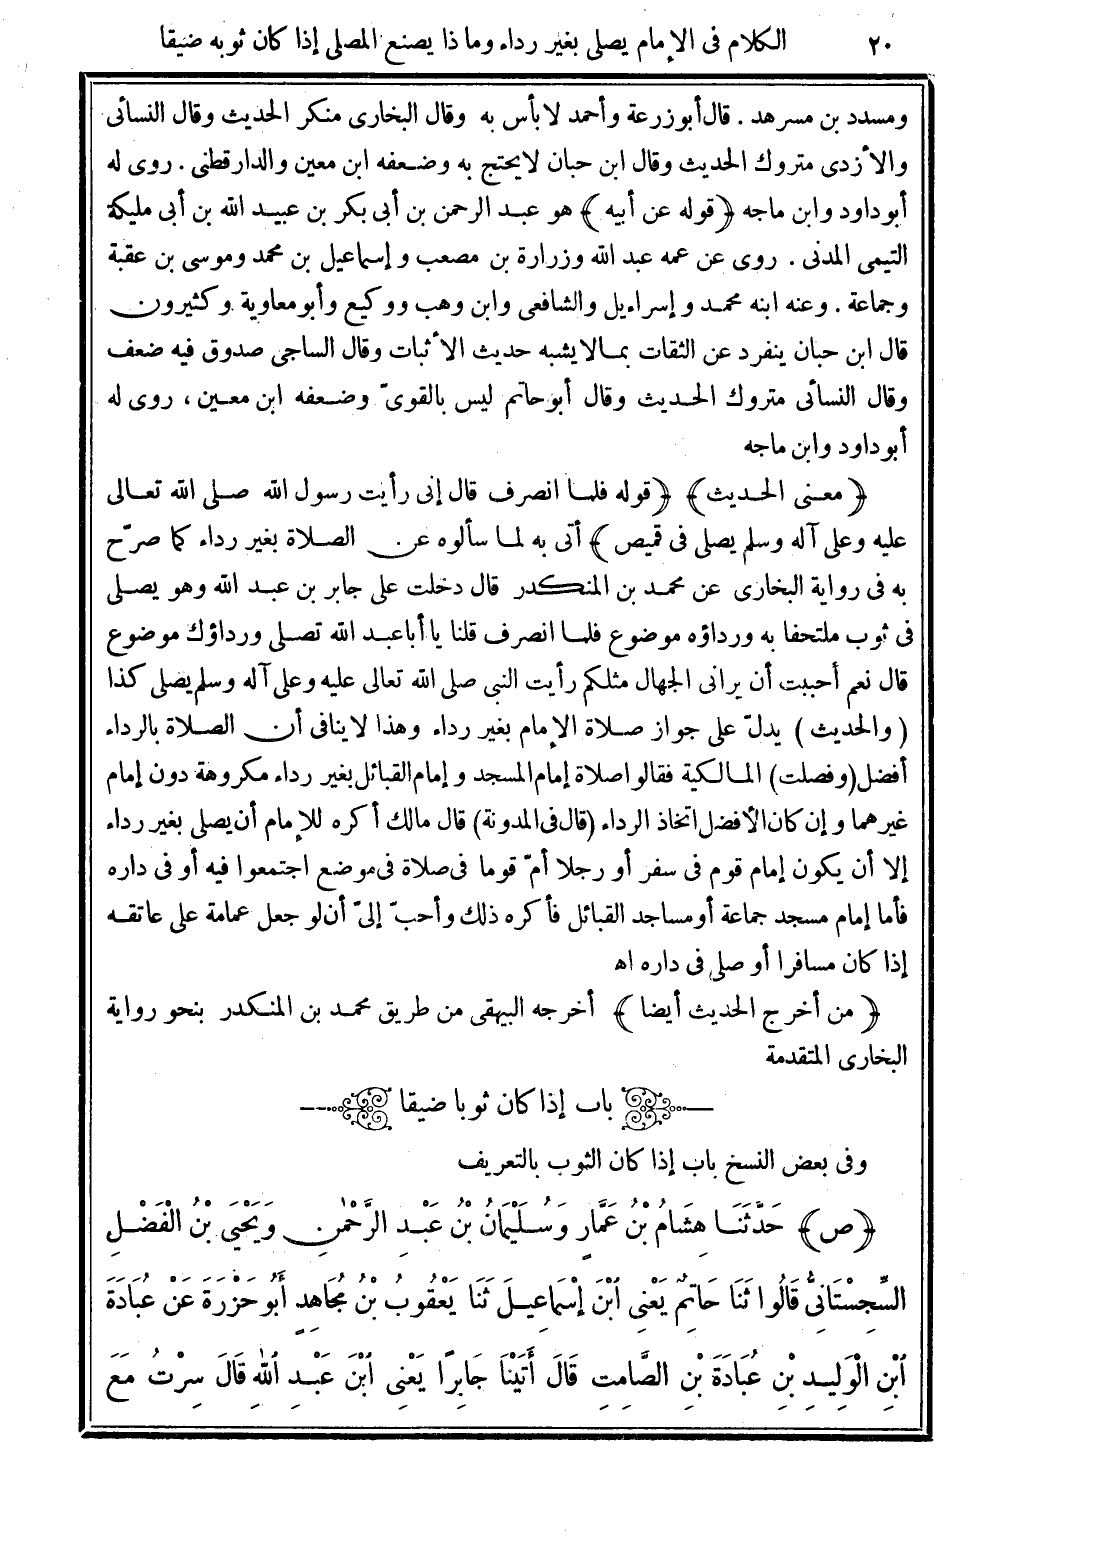 ٢٠ الكلام فى الإمام يصلى بغير رداء وماذا يصنع المصلى إذا كان ثوبه ضيقا
ومسدد بن مسرهد . قال أبوزرعة وأحمد لا بأس به وقال البخارى منكر الحديث وقال النسائى
والأزدى متروك الحديث وقال ابن حبان لا يحتج به وضعفه ابن معين والدارقطنى . روى له
أبوداود وابن ماجه ﴿قوله عن أبيه﴾ هو عبد الرحمن بن أبى بكر بن عبيد الله بن أبى مليكة
التيمى المدنى . روى عن عمه عبد الله وزرارة بن مصعب وإسماعيل بن محمد وموسى بن عقبة
وجماعة . وعنه ابنه محمد وإسراءيل والشافعى وابن وهب ووكيع وأبو معاوية وكثيرون
قال ابن حبان ينفرد عن الثقات بمالا يشبه حديث الأثبات وقال الساجى صدوق فيه ضعف
وقال النسائى متروك الحديث وقال أبوحاتم ليس بالقوىّ وضعفه ابن معين ، روى له
أبوداود وابن ماجه
﴿معنى الحديث﴾ ﴿قوله فلما انصرف قال إنى رأيت رسول الله صلى الله تعالى
عليه وعلى آله وسلم يصلى فى قميص﴾ أتى به لما سألوه عن الصلاة بغير رداء كما صرّح
به فى رواية البخارى عن محمد بن المنكدر قال دخلت على جابر بن عبد الله وهو يصلى
فى ثوب ملتحفا به ورداؤه موضوع فلما انصرف قلنا يا أبا عبد الله تصلى ورداؤك موضوع
قال نعم أحببت أن يرانى الجهال مثلكم رأيت النبى صلى الله تعالى عليه وعلى آله وسلم يصلى كذا
(والحديث) يدلّ على جواز صلاة الإمام بغير رداء وهذا لا ينافى أن الصلاة بالرداء
أفضل (وفصلت) المالكية فقالوا صلاة إمام المسجد وإمام القبائل بغير رداء مكروهة دون إمام
غيرهما وإن كان الأفضل اتخاذ الرداء (قال فى المدونة) قال مالك أكره للإمام أن يصلى بغير رداء
إلا أن يكون إمام قوم فى سفر أو رجلا أمّ قوما فى صلاة فى موضع اجتمعوا فيه أو فى داره
فأما إمام مسجد جماعة أو مساجد القبائل فأكره ذلك وأحبّ إلىّ أن لو جعل عمامة على عاتقه
إذا كان مسافرا أو صلى فى داره اه
﴿من أخرج الحديث أيضا﴾ أخرجه البيهقى من طريق محمد بن المنكدر بنحو رواية
البخارى المتقدمة
باب إذا كان ثوبا ضيقا
وفى بعض النسخ باب إذا كان الثوب بالتعريف
﴿ص﴾ حَدَّثَنَا هِشَامُ بْنُ عَمَّارٍ وَسُلَيْمَانُ بْنُ عَبْدِ الرَّحْمٰنِ وَيَحْيَى بْنُ الْفَضْلِ
السِّجِسْتَانِىُّ قَالُوا ثَنَا حَاتِمٌ يَعْنِى ابْنَ إِسْمَاعِيلَ ثَنَا يَعْقُوبُ بْنُ مُجَاهِدٍ أَبُو حَزْرَةَ عَنْ عُبَادَةَ
ابْنِ الْوَلِيدِ بْنِ عُبَادَةَ بْنِ الصَّامِتِ قَالَ أَتَيْنَا جَابِرًا يَعْنِى ابْنَ عَبْدِ اللهِ قَالَ سِرْتُ مَعَ